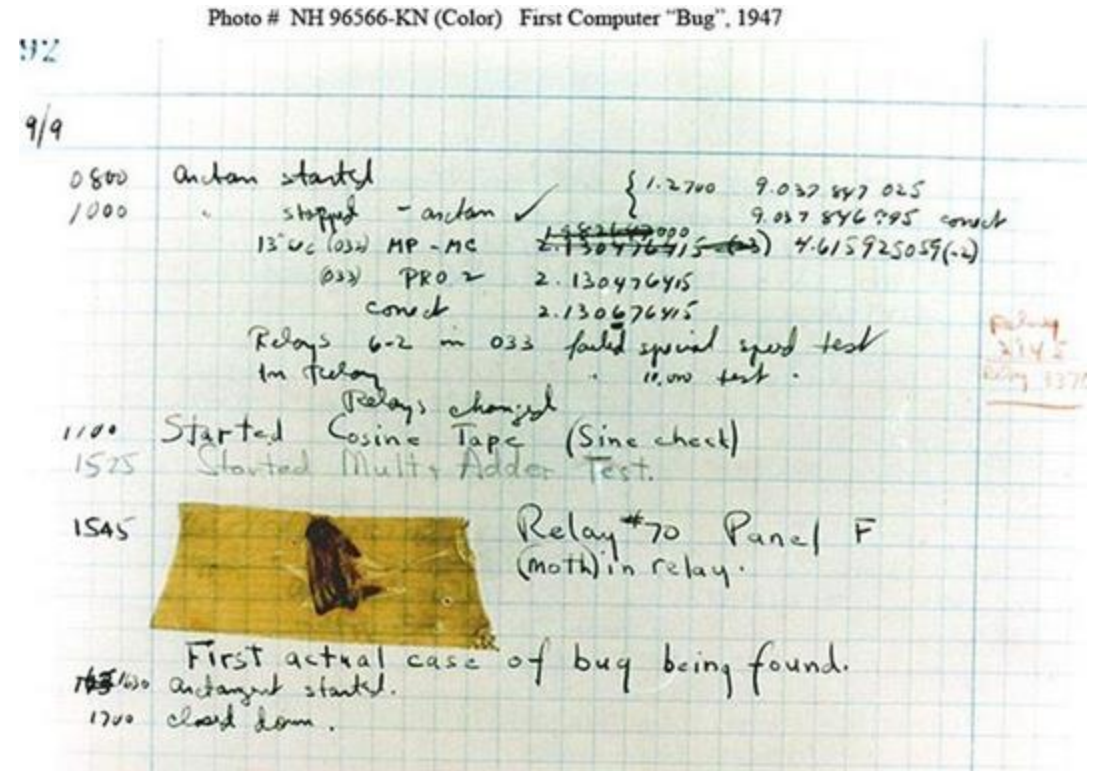 Photo # NH 96566-KN (Color) First Computer “Bug”, 1947
92
9/9
0800 Antan started
1000 " stopped - antan ✓ { 1.2700 9.037 847 025
9.037 846 995 correct
13"uc (032) MP - MC 2.130476415 (-3) 4.615925059(-2)
(033) PRO 2 2.130476415
correct 2.130676415
Relays 6-2 in 033 failed special speed test
In Relay " 11,000 test .
Relays changed
1100 Started Cosine Tape (Sine check)
1525 Started Mult + Adder Test.
1545 Relay #70 Panel F
(moth) in relay.
First actual case of bug being found.
1630 antangent started.
1700 closed down.
Relay
2145
Relay 337